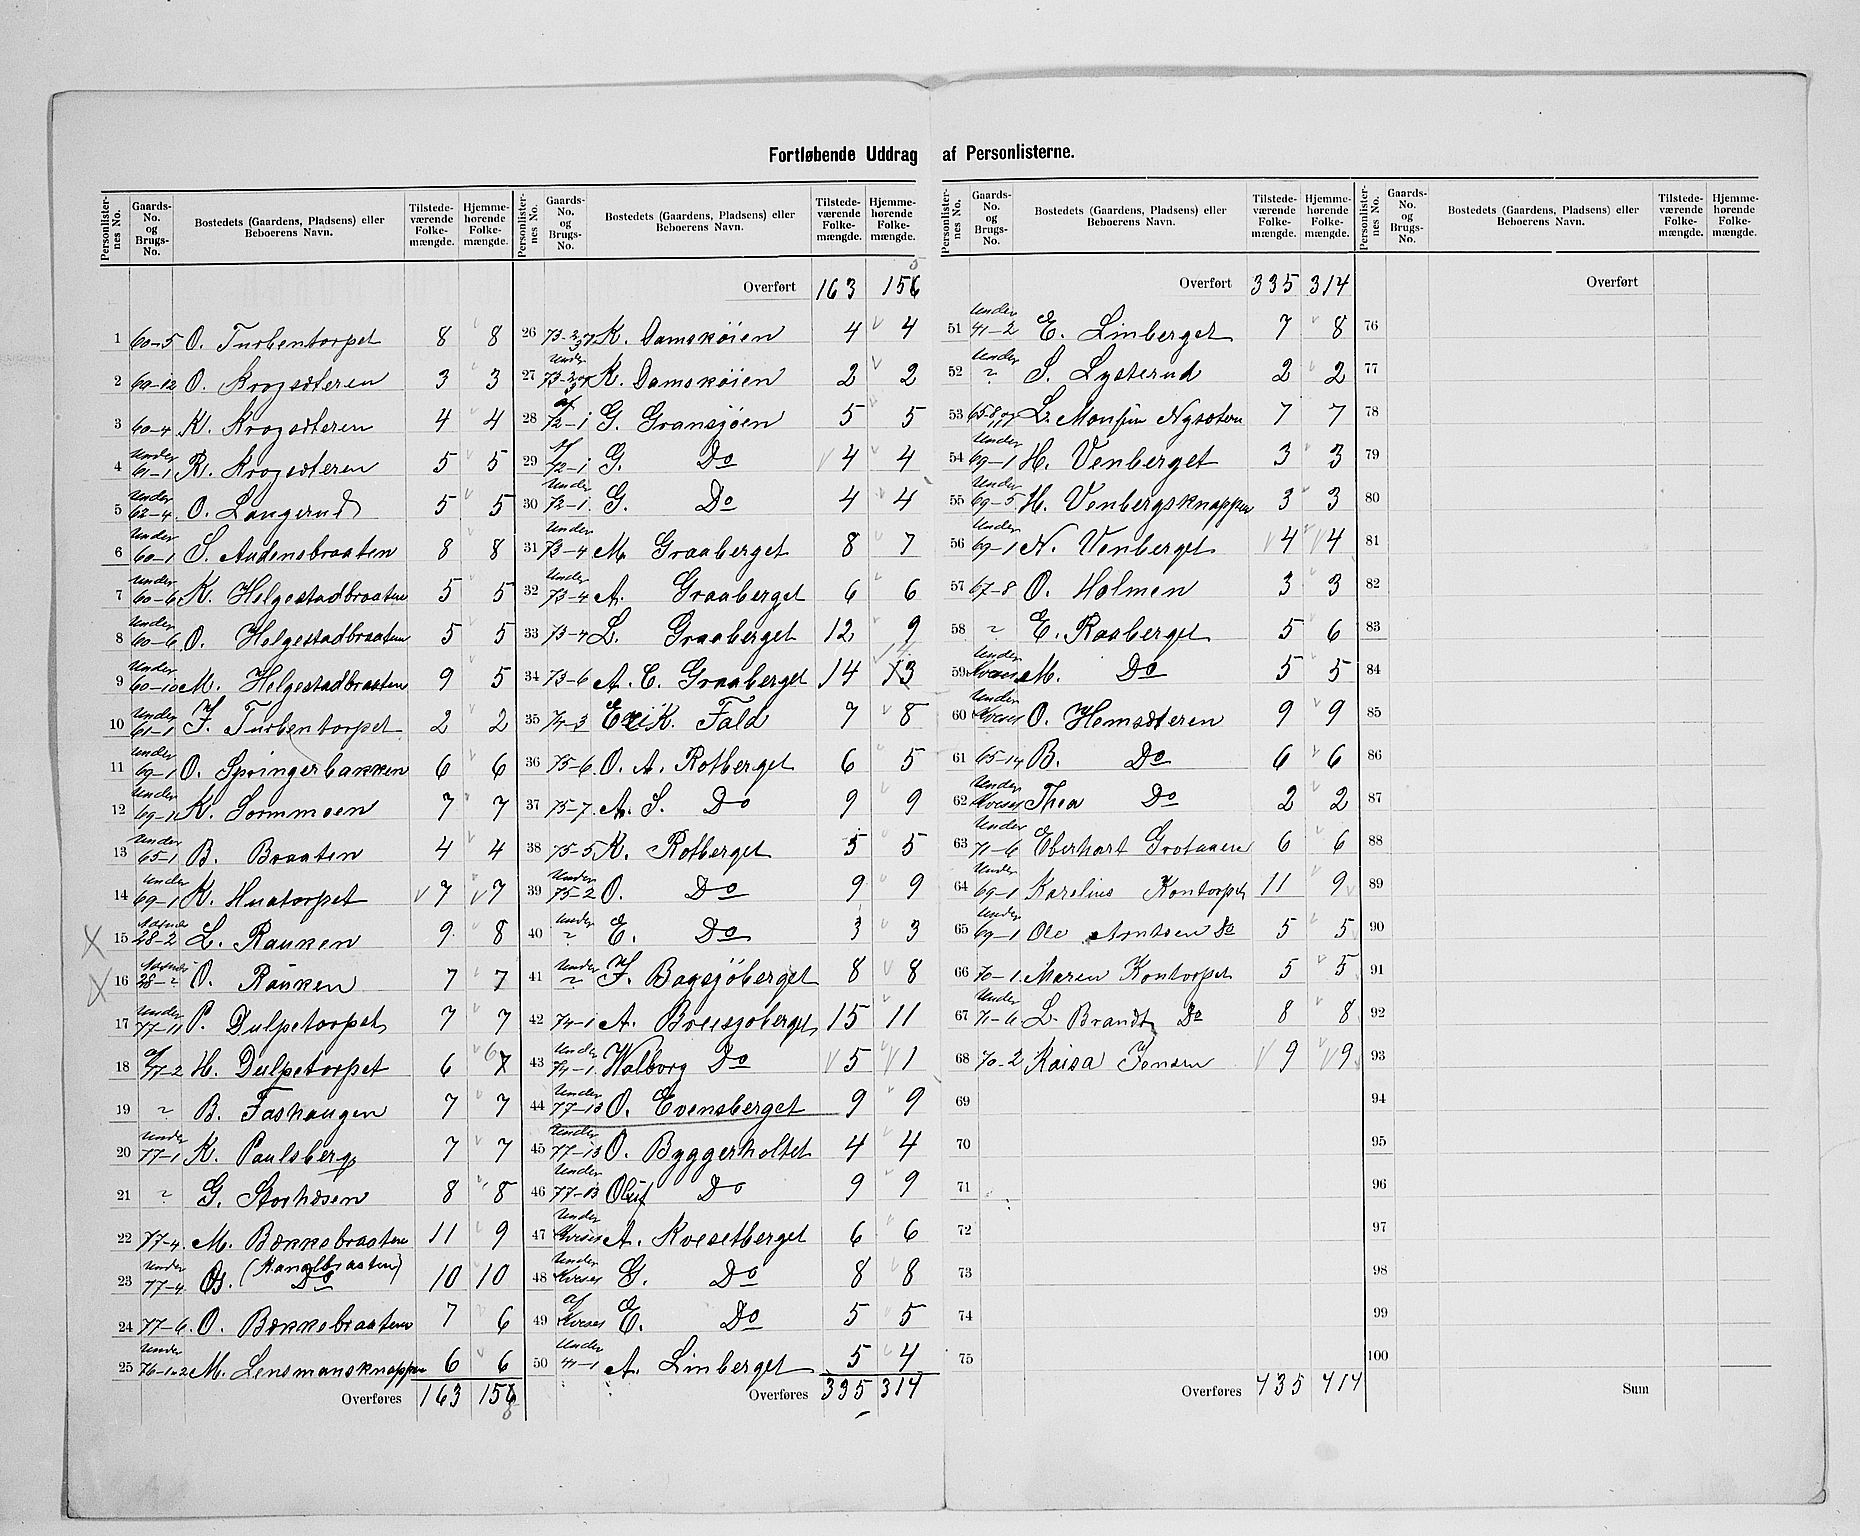 Fortløbende Uddrag af Personlisterne.
Personlisternes No. Gaards-No. og Brugs-No. Bostedets (Gaardens, Pladsens) eller Beboerens Navn. Tilstedeværende Folkemængde. Hjemmehørende Folkemængde.
1 60-5 O. Turbentorpet 8 8
2 60-12 O. Krogsæteren 3 3
3 60-4 K. Krogsæteren 4 4
4 Under 61-1 R. Krogsæteren 5 5
5 Under 62-4 O. Langerud 5 5
6 Under 60-1 S. Audensbraaten 8 8
7 Under 60-6 K. Helgestadbraaten 5 5
8 Under 60-6 O. Helgestadbraaten 5 5
9 Under 60-10 M. Helgestadbraaten 9 5
10 Under 61-1 J. Turbentorpet 2 2
11 Under 69-1 O. Springerbakken 6 6
12 Under 69-1 K. Sormmoen 7 7
13 Under 65-1 B. Braaten 4 4
14 Under 69-1 K. Huatorpet 7 7
X 15 28-2 L. Rauken 9 8
X 16 28-" O. Rauken 7 7
17 Under 77-11 P. Dulpetorpet 7 7
18 af 77-2 H. Dulpetorpet 6 6 7
19 " B. Fashaugen 7 7
20 Under 77-1 K. Paulsberg 7 7
21 " G. Storhæsen 8 8
22 77-4 M. Bækkebraaten 11 9
(Kanalbraaten)
23 Under 77-4 Do 10 10
24 77-6 O. Bækkebraaten 7 6
25 Under 76-1-2 M. Lensmansknappen 6 6
Overføres 163 156
Personlisternes No. Gaards-No. og Brugs-No. Bostedets (Gaardens, Pladsens) eller Beboerens Navn. Tilstedeværende Folkemængde. Hjemmehørende Folkemængde.
Overført 163 156
26 K. Damskøien 4 4
27 Under K. Damskøien 2 2
28 af 72-1 G. Gransjøen 5 5
29 af 72-1 G. Do 4 4
30 Under 72-1 G. Do 4 4
31 Under 73-4 M. Graaberget 8 7
32 Under 73-4 A. Graaberget 6 6
33 73-4 L. Graaberget 12 9
34 73-6 A. E. Graaberget 14 14 13
35 74-3 Erik Fald 7 8
36 75-6 O. A. Rotberget 6 5
37 75-7 A. S. Do 9 9
38 75-5 K. Rotberget 5 5
39 Under 75-2 O. Do 9 9
40 Under " E. Do 3 3
41 Under " J. Bagsjøberget 8 8
42 74-1 A. Breisjoberget 15 11
43 Under 74-1 Walborg Do 5 1
44 Under 77-13 O. Evensberget 9 9
45 Under 77-13 O. Byggerholtet 4 4
46 Under 77-13 Oluf Do 9 9
47 Under Kveset A. Kvesetberget 6 6
48 Under Kveset G. Do 8 8
49 af Kveset E. Do 5 5
50 Under 41-1 A. Linberget 5 4
Overføres 335 314
Personlisternes No. Gaards-No. og Brugs-No. Bostedets (Gaardens, Pladsens) eller Beboerens Navn. Tilstedeværende Folkemængde. Hjemmehørende Folkemængde.
Overført 335 314
51 Under 41-2 E. Linberget 7 8
52 Under " S. Lysterud 2 2
53 L. Nysæteren 7 7
54 Under 69-1 H. Venberget 3 3
55 Under 69-5 H. Venbergsknappen 3 3
56 Under 69-1 N. Venberget 4 4
57 67-8 O. Holmen 3 3
58 " E. Raaberget 5 6
59 Under Kveset M. Do 5 5
60 Under Kveset O. Hemsæteren 9 9
61 65-14 B. Do 6 6
62 Under Kveset Thea Do 2 2
63 Under 71-6 Eberhart Grotaaen 6 6
64 Under 69-1 Karelius Kontorpet 11 9
65 Under 69-1 Ole Arntsen Do 5 5
66 70-1 Maren Kontorpet 5 5
67 Under 71-6 L. Brandt Do 8 8
68 70-2 Kaisa Jonsen 9 9
69
70
71
72
73
74
75
Overføres 435 414
Personlisternes No. Gaards-No. og Brugs-No. Bostedets (Gaardens, Pladsens) eller Beboerens Navn. Tilstedeværende Folkemængde. Hjemmehørende Folkemængde.
Overført
76
77
78
79
80
81
82
83
84
85
86
87
88
89
90
91
92
93
94
95
96
97
98
99
100
Sum